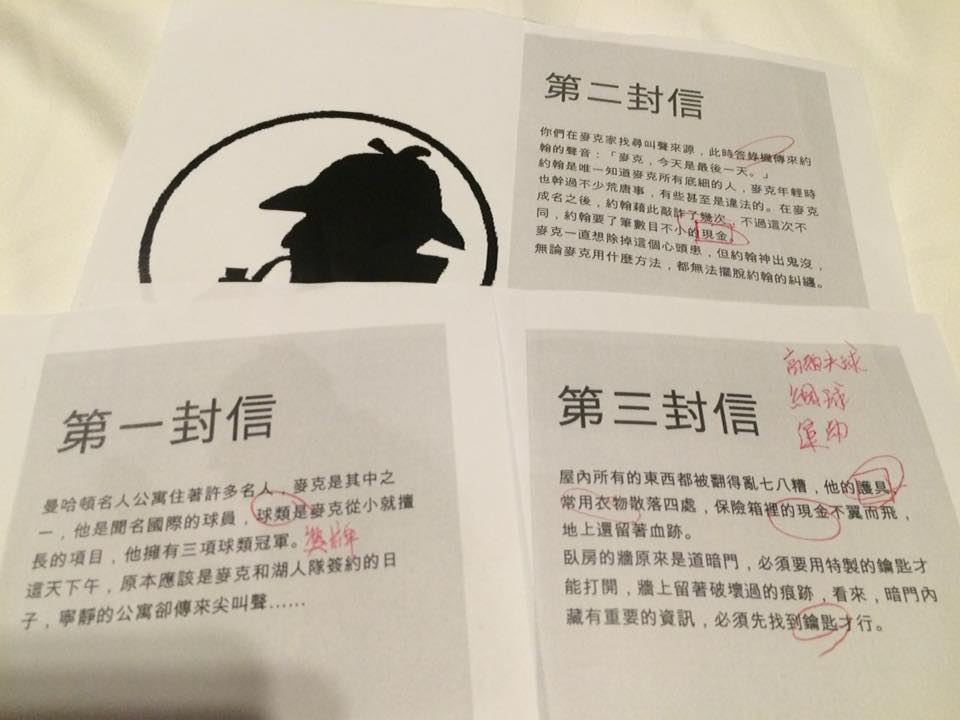 第二封信
你們在麥克家找尋叫聲來源，此時答錄機傳來約
翰的聲音：「麥克，今天是最後一天。」
約翰是唯一知道麥克所有底細的人，麥克年輕時
也幹過不少荒唐事，有些甚至是違法的。在麥克
成名之後，約翰藉此敲詐了幾次，不過這次不
同，約翰要了筆數目不小的現金。
麥克一直想除掉這個心頭患，但約翰神出鬼沒，
無論麥克用什麼方法，都無法擺脫約翰的糾纏。
第一封信
曼哈頓名人公寓住著許多名人，麥克是其中之
一，他是聞名國際的球員，球類是麥克從小就擅
長的項目，他擁有三項球類冠軍。獎牌
這天下午，原本應該是麥克和湖人隊簽約的日
子，寧靜的公寓卻傳來尖叫聲……
第三封信
高爾夫球
網球
運動
屋內所有的東西都被翻得亂七八糟，他的護具、
常用衣物散落四處，保險箱裡的現金不翼而飛，
地上還留著血跡。
臥房的牆原來是道暗門，必須要用特製的鑰匙才
能打開，牆上留著破壞過的痕跡，看來，暗門內
藏有重要的資訊，必須先找到鑰匙才行。